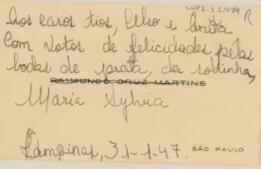 Aos caros tios, Celso e Anita
Com votos de felicidades pelas
bodas de prata, da sobrinha,
RAIMUNDO CRUZ MARTINS
Maria Sylvia
Campinas, 31-1-47.
SÃO PAULO